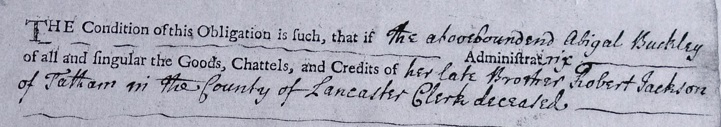 THE Condition of this Obligation is such, that if the aboveboundend Abigal Buckley
Administratrix
of all and singular the Goods, Chattels, and Credits of her late Brother Robert Jackson
of Tatham in the County of Lancaster Clerk deceased